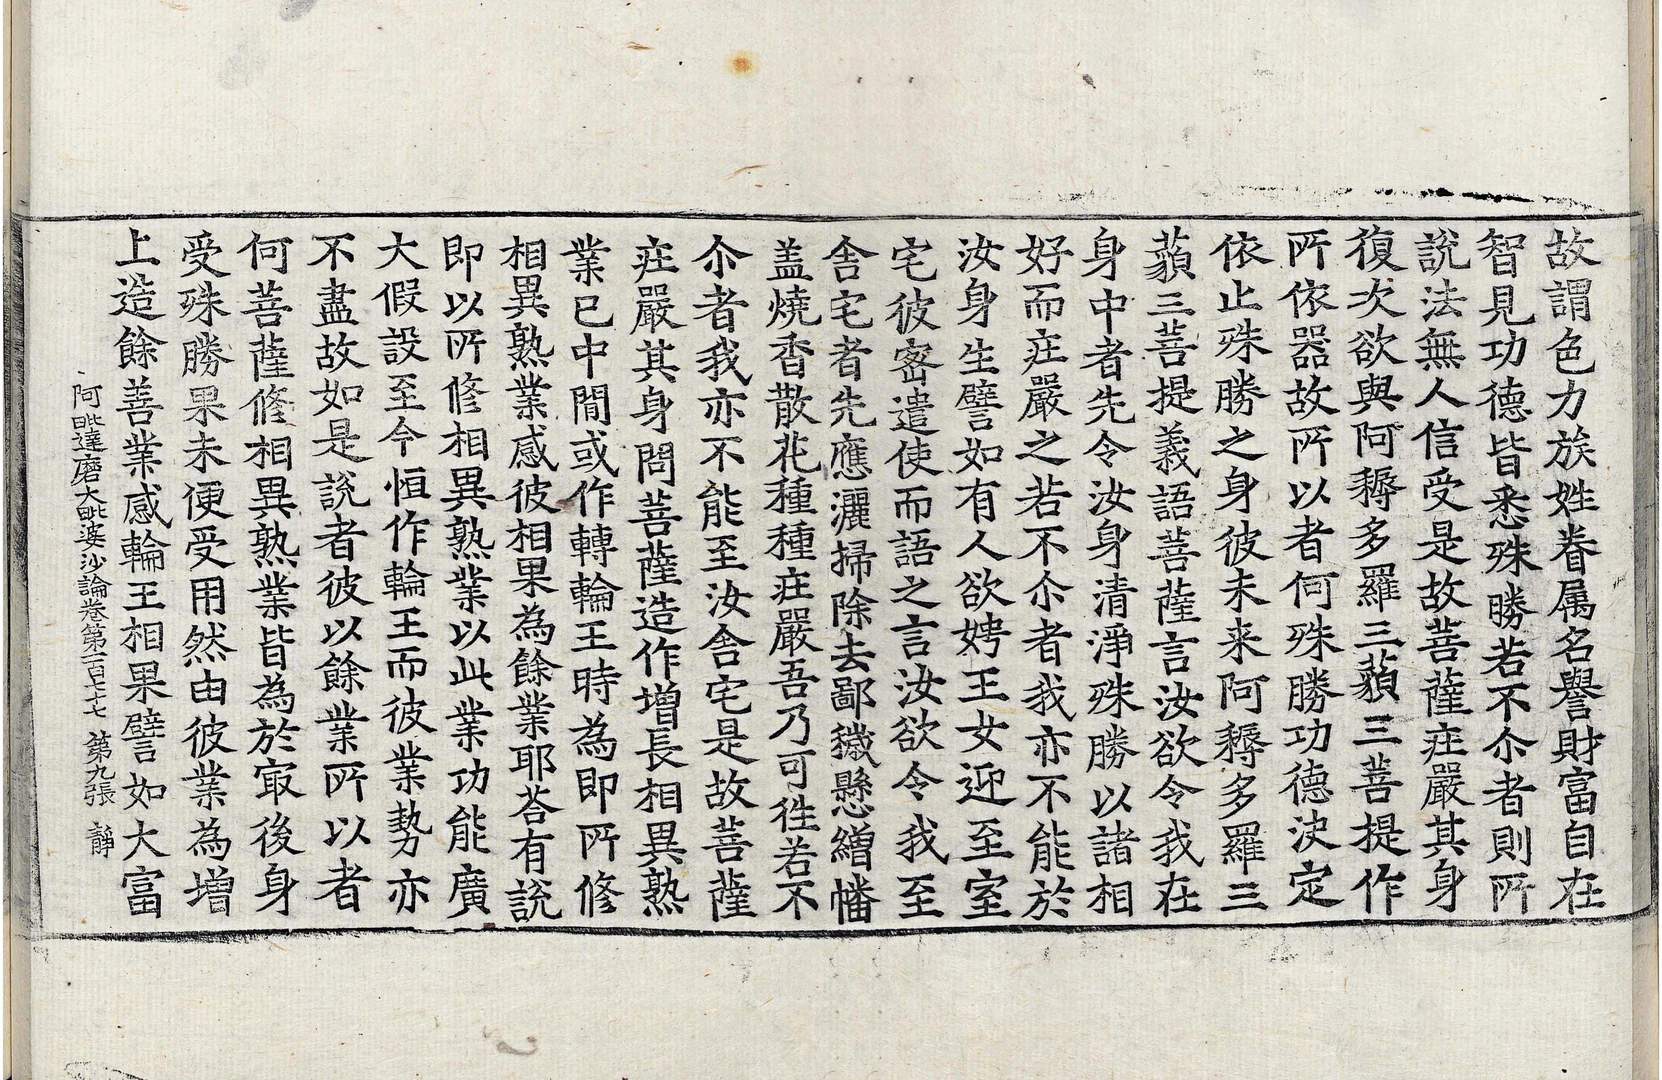 故謂色力族姓眷属名譽財富自在
智見功德皆悉殊勝若不尒者則所
說法無人信受是故菩薩庄嚴其身
復次欲與阿耨多羅三藐三菩提作
所依器故所以者何殊勝功德决定
依止殊勝之身彼未来阿耨多羅三
藐三菩提義語菩薩言汝欲令我在
身中者先令汝身清淨殊勝以諸相
好而庄嚴之若不尒者我亦不能於
汝身生譬如有人欲娉王女迎至室
宅彼密遣使而語之言汝欲令我至
舎宅者先應灑掃除去鄙穢懸繒幡
盖燒香散花種種庄嚴吾乃可徃若不
尒者我亦不能至汝舎宅是故菩薩
庄嚴其身問菩薩造作增長相異熟
業已中間或作轉輪王時為即所修
相異熟業感彼相果為餘業耶荅有說
即以所修相異熟業以此業功能廣
大假設至今恒作輪王而彼業勢亦
不盡故如是說者彼以餘業所以者
何菩薩修相異熟業皆為於㝡後身
受殊勝果未便受用然由彼業為增
上造餘善業感輪王相果譬如大富
阿毗達磨大毗婆沙論卷第一百七十七 第九張 靜